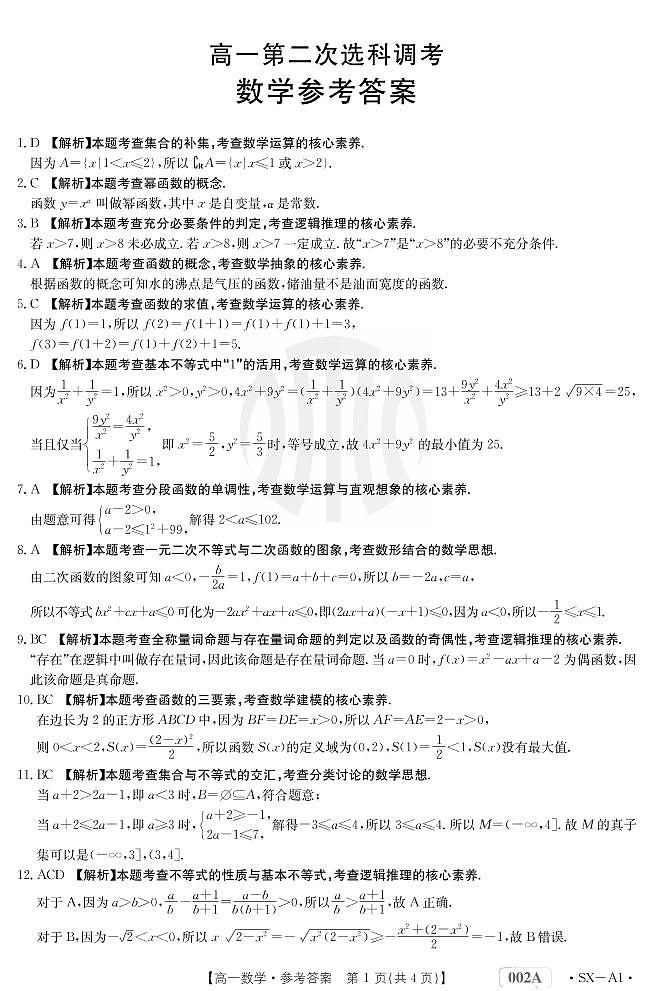 高一第二次选科调考
数学参考答案
1. D 【解析】本题考查集合的补集,考查数学运算的核心素养.
因为 A={x|1<x≤2},所以 ∁RA={x|x≤1 或 x>2}.
2. C 【解析】本题考查幂函数的概念.
函数 y=xᵅ 叫做幂函数,其中 x 是自变量,α 是常数.
3. B 【解析】本题考查充分必要条件的判定,考查逻辑推理的核心素养.
若 x>7,则 x>8 未必成立.若 x>8,则 x>7 一定成立.故“x>7”是“x>8”的必要不充分条件.
4. A 【解析】本题考查函数的概念,考查数学抽象的核心素养.
根据函数的概念可知水的沸点是气压的函数,储油量不是油面宽度的函数.
5. C 【解析】本题考查函数的求值,考查数学运算的核心素养.
因为 f(1)=1,所以 f(2)=f(1+1)=f(1)+f(1)+1=3,
f(3)=f(1+2)=f(1)+f(2)+1=5.
6. D 【解析】本题考查基本不等式中“1”的活用,考查数学运算的核心素养.
因为 1/x²+1/y²=1,所以 x²>0,y²>0,4x²+9y²=(1/x²+1/y²)(4x²+9y²)=13+9y²/x²+4x²/y²≥13+2√(9×4)=25,
当且仅当{9y²/x²=4x²/y², 1/x²+1/y²=1, 即 x²=5/2,y²=5/3时,等号成立,故 4x²+9y² 的最小值为 25.
7. A 【解析】本题考查分段函数的单调性,考查数学运算与直观想象的核心素养.
由题意可得{a-2>0, a-2≤1²+99, 解得 2<a≤102.
8. A 【解析】本题考查一元二次不等式与二次函数的图象,考查数形结合的数学思想.
由二次函数的图象可知 a<0,-b/2a=1,f(1)=a+b+c=0,所以 b=-2a,c=a,
所以不等式 bx²+cx+a≤0 可化为-2ax²+ax+a≤0,即(2ax+a)(-x+1)≤0,因为 a<0,所以-1/2≤x≤1.
9. BC 【解析】本题考查全称量词命题与存在量词命题的判定以及函数的奇偶性,考查逻辑推理的核心素养.
“存在”在逻辑中叫做存在量词,因此该命题是存在量词命题.当 a=0 时,f(x)=x²-ax+a-2 为偶函数,因
此该命题是真命题.
10. BC 【解析】本题考查函数的三要素,考查数学建模的核心素养.
在边长为 2 的正方形 ABCD 中,因为 BF=DE=x>0,所以 AF=AE=2-x>0,
则 0<x<2,S(x)=(2-x)²/2,所以函数 S(x)的定义域为(0,2),S(1)=1/2<1,S(x)没有最大值.
11. BC 【解析】本题考查集合与不等式的交汇,考查分类讨论的数学思想.
当 a+2>2a-1,即 a<3 时,B=∅⊆A,符合题意;
当 a+2≤2a-1,即 a≥3 时,{a+2≥-1, 2a-1≤7, 解得-3≤a≤4,所以 3≤a≤4.所以 M=(-∞,4].故 M 的真子
集可以是(-∞,3],(3,4].
12. ACD 【解析】本题考查不等式的性质与基本不等式,考查逻辑推理的核心素养.
对于 A,因为 a>b>0,a/b-(a+1)/(b+1)=(a-b)/(b(b+1))>0,所以 a/b>(a+1)/(b+1),故 A 正确.
对于 B,因为-√2<x<0,所以 x√(2-x²)=-√(x²(2-x²))≥-(x²+(2-x²))/2=-1,故 B 错误.
【高一数学·参考答案 第 1 页(共 4 页)】 002A ·SX-A1·